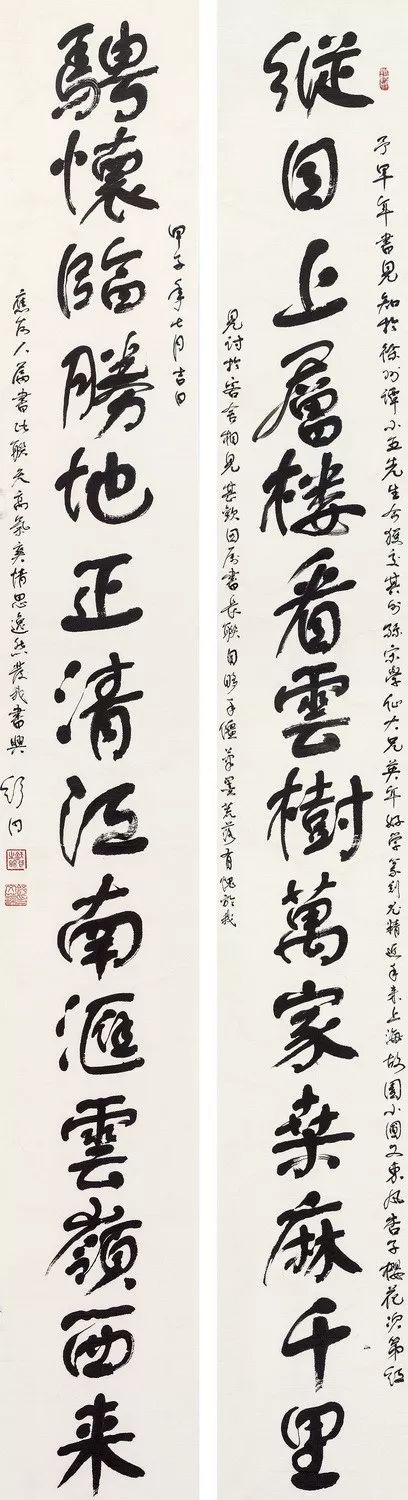 縱目上層樓看雲樹萬家桑麻千里
予早年書見知於徐州譚小五先生今猶交其外孫宗學仙大兄英年好學篆刻尤精近年來上海故園小園又東風杏子櫻花次第
見討於客舍相見甚歡因屬書長聯自
手僵筆墨荒落有愧於我
騁懷臨勝地正清江南滙雲嶺西来
甲子年七月吉日
應友人屬書此聯天高氣爽情思逸然發我書興
舒同